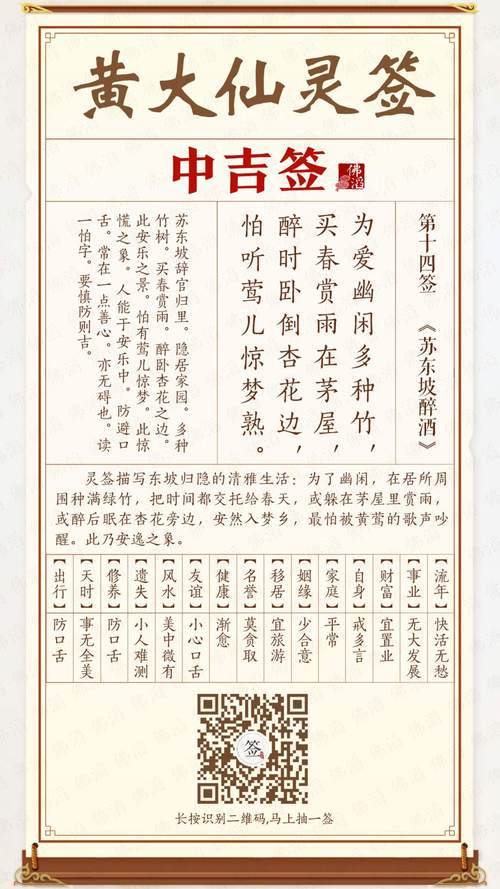 黄大仙灵签
中吉签
佛滔
第十四签 《苏东坡醉酒》
为爱幽闲多种竹，
买春赏雨在茅屋，
醉时卧倒杏花边，
怕听莺儿惊梦熟。
苏东坡辞官归里。隐居家园。多种
竹树。买春赏雨。醉卧杏花之边。
此安乐之景。怕有莺儿惊梦。此惊
慌之象。人能于安乐中。防避口
舌。常在一点善心。亦无碍也。读
一怕字。要慎防则吉。
灵签描写东坡归隐的清雅生活：为了幽闲，在居所周
围种满绿竹，把时间都交托给春天，或躲在茅屋里赏雨，
或醉后眠在杏花旁边，安然入梦乡，最怕被黄莺的歌声吵
醒。此乃安逸之象。
【流年】快活无愁
【事业】无大发展
【财富】宜置业
【自身】戒多言
【家庭】平常
【姻缘】少合意
【移居】宜旅游
【名誉】莫贪取
【健康】渐愈
【友谊】小心口舌
【风水】美中微有
【遗失】小人难测
【修养】防口舌
【天时】事无全美
【出行】防口舌
签
长按识别二维码,马上抽一签